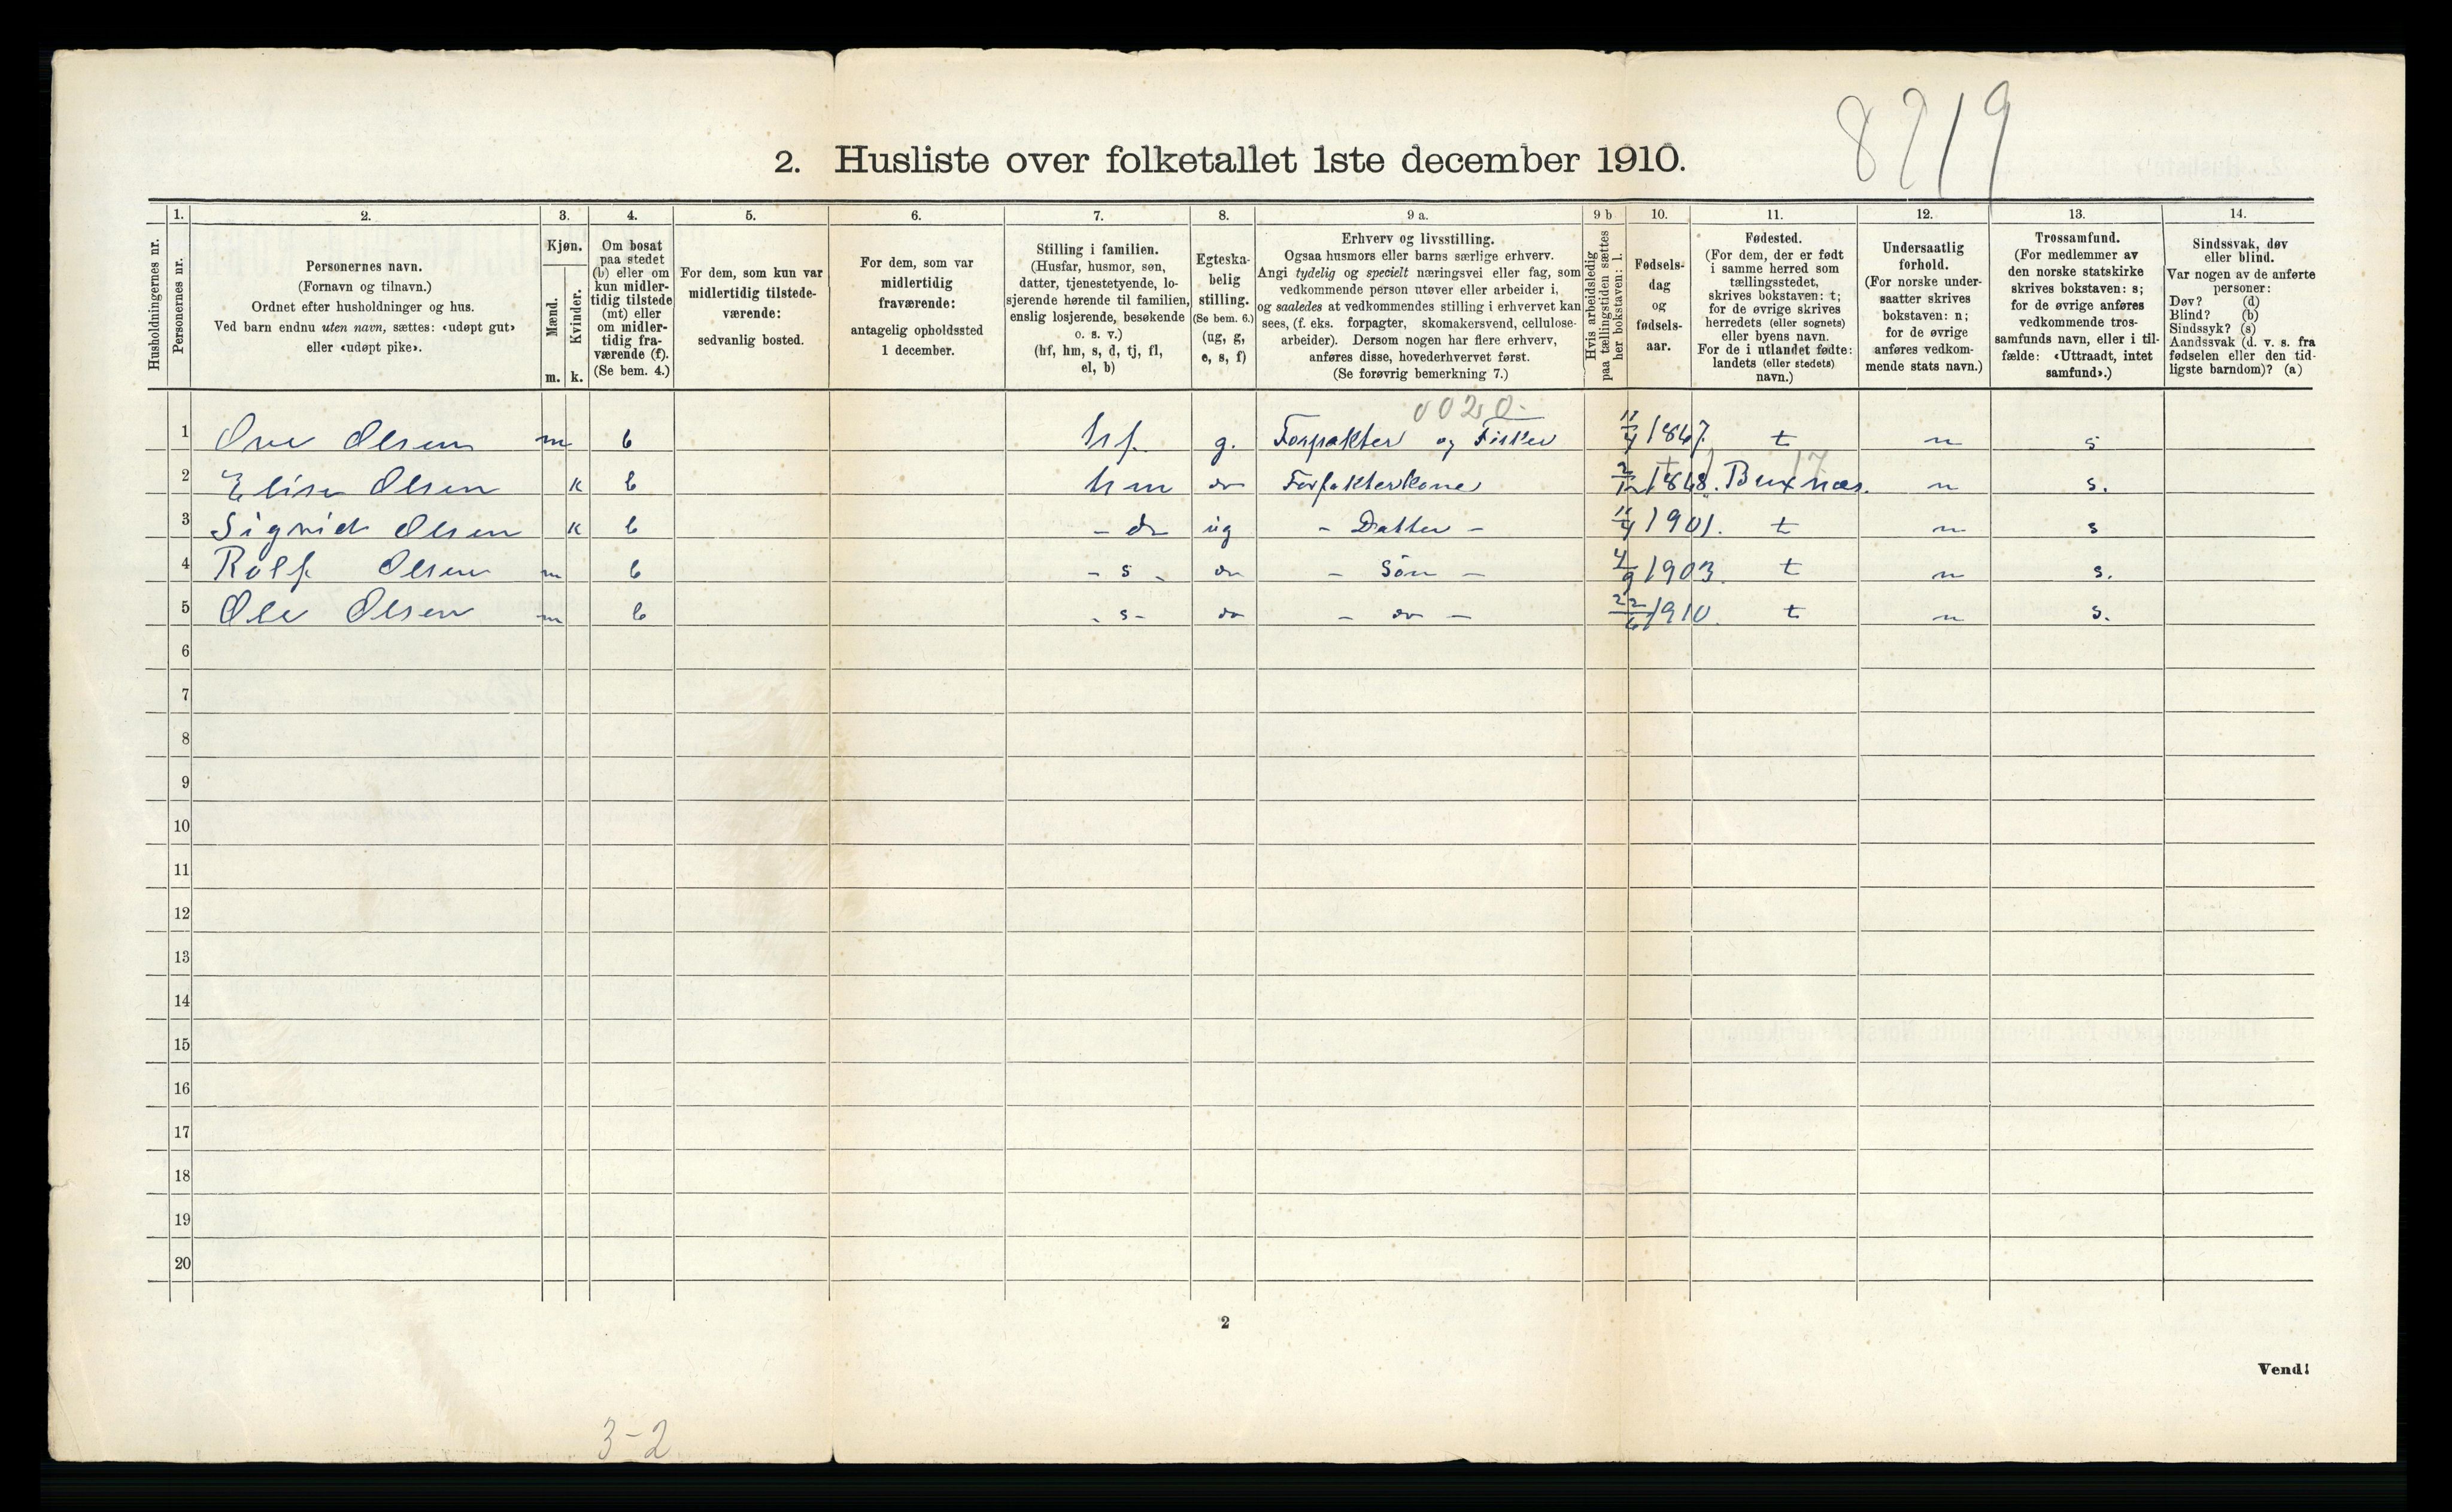 8219
2. Husliste over folketallet 1ste december 1910.
Husholdningernes nr.
1. Personernes nr.
2. Personernes navn.
(Fornavn og tilnavn.)
Ordnet efter husholdninger og hus.
Ved barn endnu uten navn, sættes: «udøpt gut»
eller «udøpt pike».
3. Kjøn.
Mænd. m.
Kvinder. k.
4. Om bosat
paa stedet
(b) eller om
kun midler-
tidig tilstede
(mt) eller
om midler-
tidig fra-
værende (f).
(Se bem. 4.)
5. For dem, som kun var
midlertidig tilstede-
værende:
sedvanlig bosted.
6. For dem, som var
midlertidig
fraværende:
antagelig opholdssted
1 december.
7. Stilling i familien.
(Husfar, husmor, søn,
datter, tjenestetyende, lo-
sjerende hørende til familien,
enslig losjerende, besøkende
o. s. v.)
(hf, hm, s, d, tj, fl,
el, b)
8. Egteska-
belig
stilling.
(Se bem. 6.)
(ug, g,
e, s, f)
9 a. Erhverv og livsstilling.
Ogsaa husmors eller barns særlige erhverv.
Angi tydelig og specielt næringsvei eller fag, som
vedkommende person utøver eller arbeider i,
og saaledes at vedkommendes stilling i erhvervet kan
sees, (f. eks. forpagter, skomakersvend, cellulose-
arbeider). Dersom nogen har flere erhverv,
anføres disse, hovederhvervet først.
(Se forøvrig bemerkning 7.)
9 b Hvis arbeidsledig
paa tællingstiden sættes
her bokstaven: l.
10. Fødsels-
dag
og
fødsels-
aar.
11. Fødested.
(For dem, der er født
i samme herred som
tællingsstedet,
skrives bokstaven: t;
for de øvrige skrives
herredets (eller sognets)
eller byens navn.
For de i utlandet fødte:
landets (eller stedets)
navn.)
12. Undersaatlig
forhold.
(For norske under-
saatter skrives
bokstaven: n;
for de øvrige
anføres vedkom-
mende stats navn.)
13. Trossamfund.
(For medlemmer av
den norske statskirke
skrives bokstaven: s;
for de øvrige anføres
vedkommende tros-
samfunds navn, eller i til-
fælde: «Uttraadt, intet
samfund».)
14. Sindssvak, døv
eller blind.
Var nogen av de anførte
personer:
Døv? (d)
Blind? (b)
Sindssyk? (s)
Aandssvak (d. v. s. fra
fødselen eller den tid-
ligste barndom)? (a)
0020
1 Ove Olsen m b hf. g. Forpakter og Fisker 11/4 1867. t n s
17
2 Elise Olsen k b hm do Forpakterkone 2/12 1868. Buxnæs. n s.
3 Sigrid Olsen k b - d ug - Datter - 11/4 1901. t n s
4 Rolf Olsen m b - s - do - Sön - 4/9 1903. t n s.
5 Ole Olsen m b - s - do - do - 22/6 1910. t n s.
6
7
8
9
10
11
12
13
14
15
16
17
18
19
20
2
Vend!
3-2